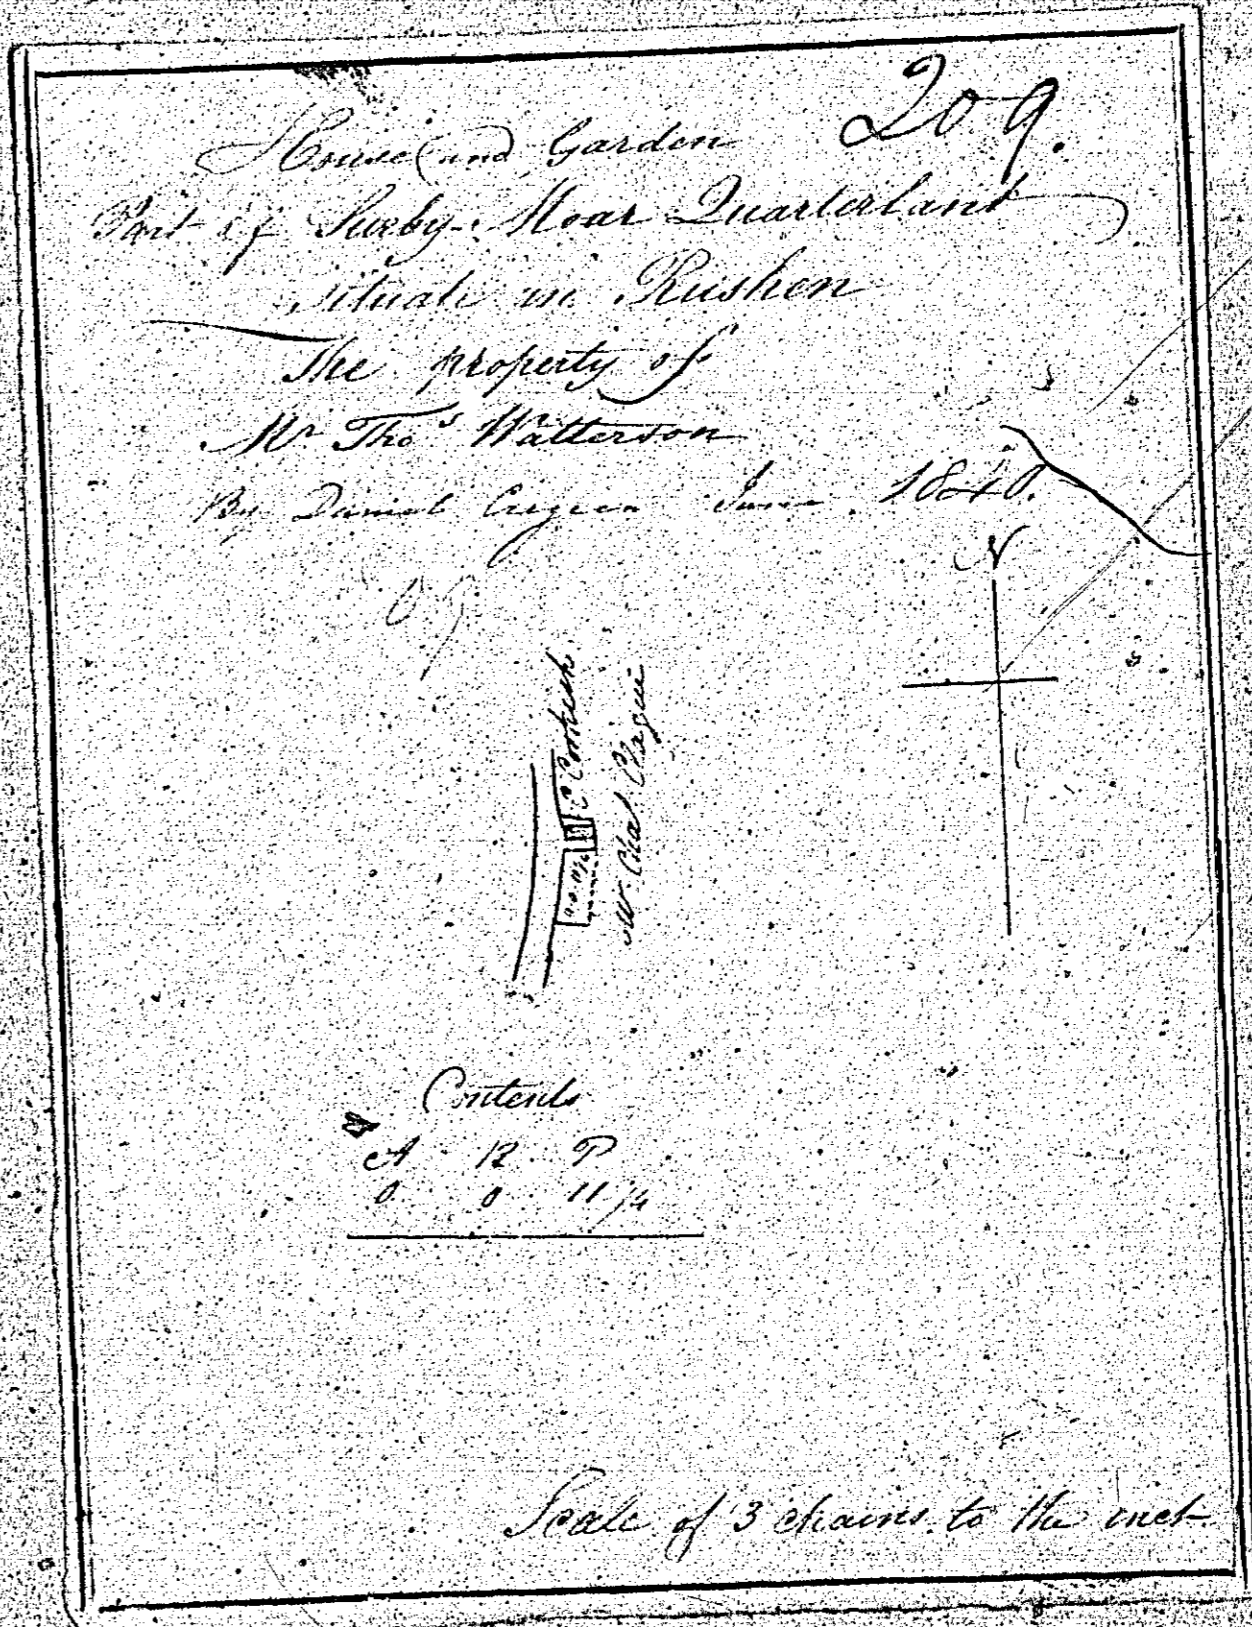 209.
House and Garden
Part of Surby Moar Quarterland
situate in Rushen
The property of
Mr Thos Watterson
By Daniel Cregeen June 1840.
N
C Corkish
Mr. Chas. Clague
0.0.11 1/4
Contents
A R P
0 0 11 1/4
Scale of 3 chains to the inch